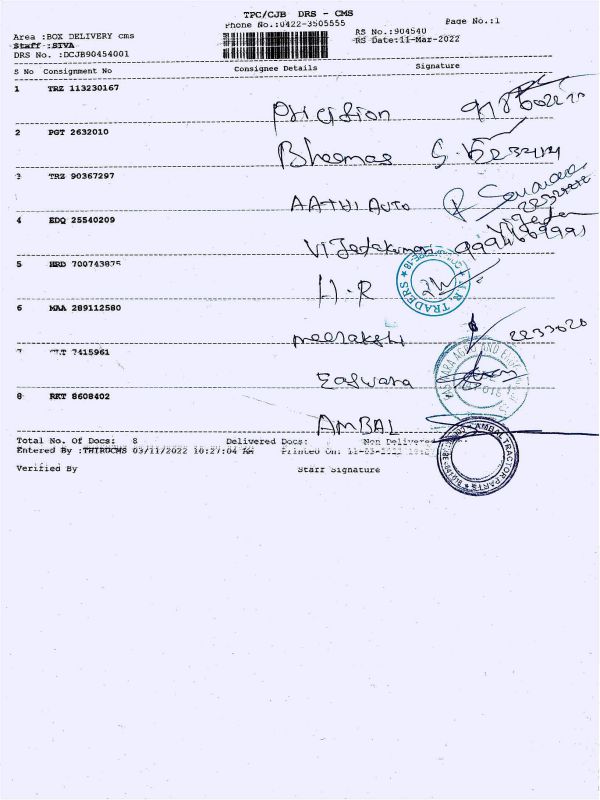 TPC/CJB DRS - CMS
Phone No.:0422-3505555 Page No.:1
Area :BOX DELIVERY cms RS No.:904540
Staff :SIVA RS Date:11-Mar-2022
DRS No. :DCJB90454001
S No Consignment No Consignee Details Signature
1 TRZ 113230167
Precision
2 PGT 2632010
Bheemas
3 TRZ 90367297
AATHI AUTO
4 EDQ 25540209
VIJedakumari
5 HRD 700743875
H.R
6 MAA 289112580
meerakshi 2233020
7 7415961
Easwara
8 RKT 8608402
AMBAL
Total No. Of Docs: 8 Delivered Docs: Non Delivere
Entered By :THIRUCMS 03/11/2022 10:27:04 AM Printed On: 11-03-2022
Verified By Staff Signature
AMBAL TRACTOR PARTS